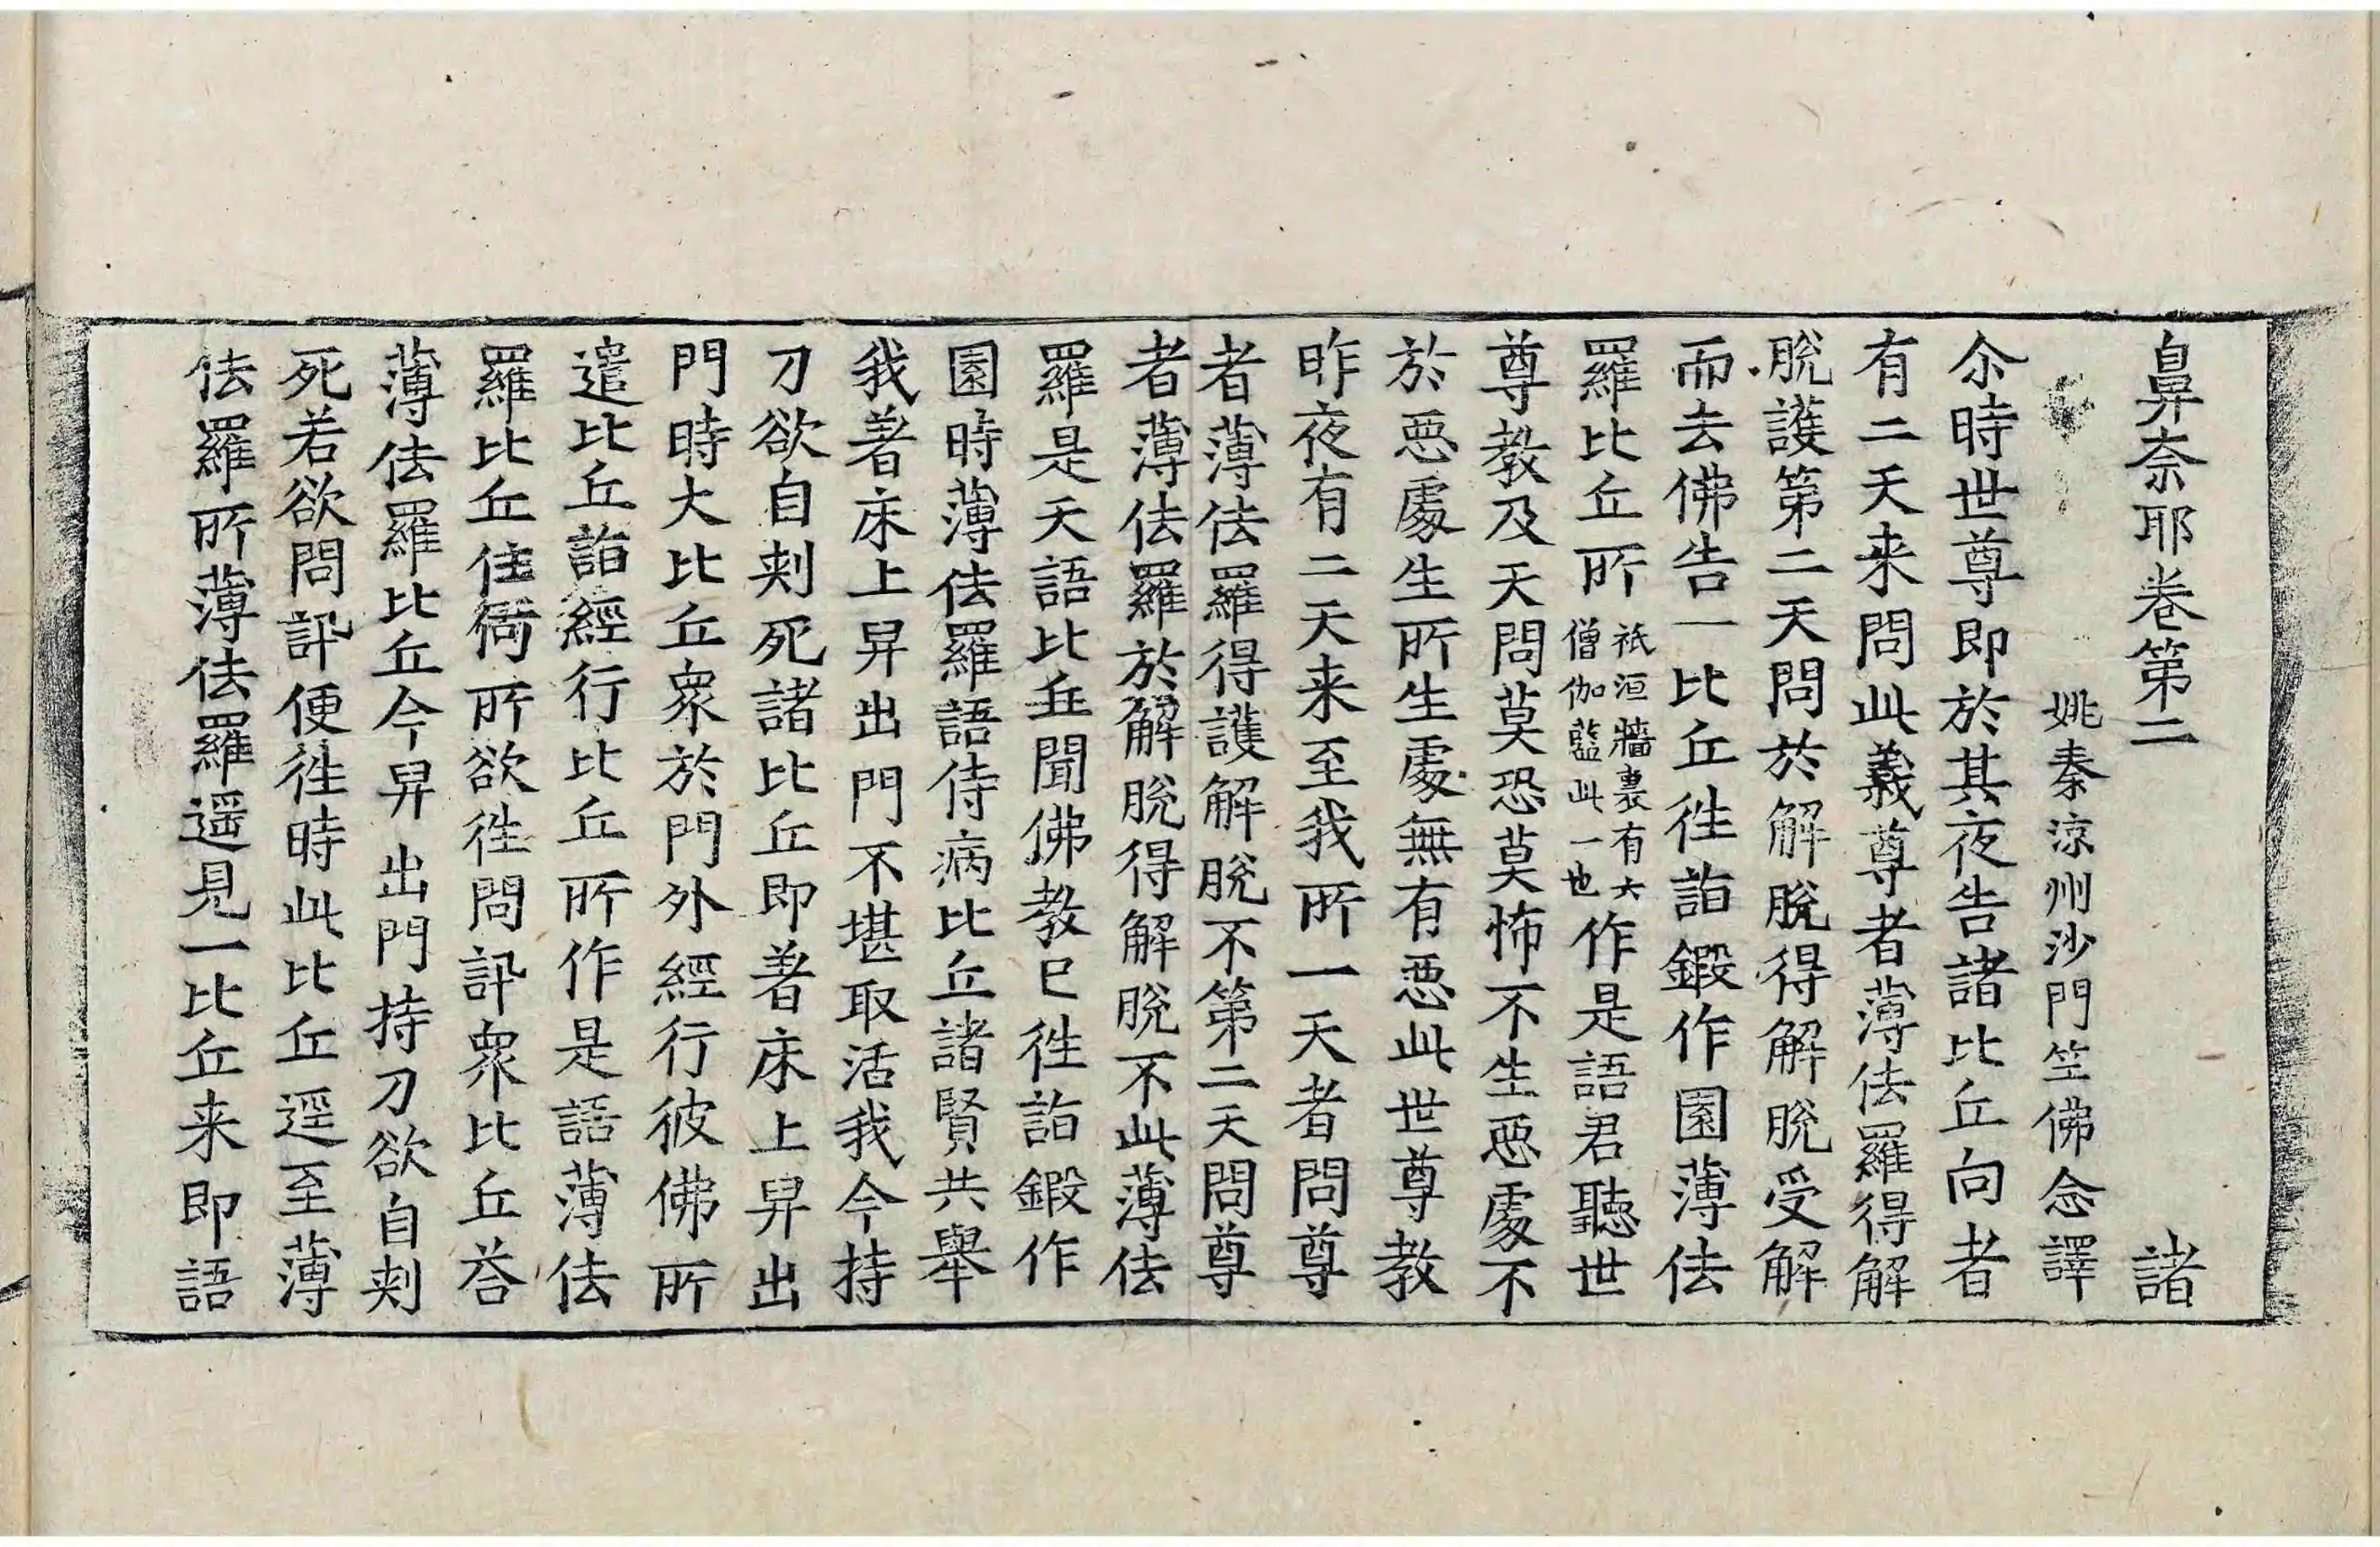 鼻柰耶卷第二 諸
姚秦涼州沙門竺佛念譯
尒時世尊即於其夜告諸比丘向者
有二天来問此義尊者薄佉羅得解
脫護第二天問於解脫得解脫受解
而去佛告一比丘徃詣鍛作園薄佉
羅比丘所祇洹牆裏有六僧伽藍此一也作是語君聽世
尊教及天問莫恐莫怖不生惡處不
於惡處生所生處無有惡此世尊教
昨夜有二天来至我所一天者問尊
者薄佉羅得護解脫不第二天問尊
者薄佉羅於解脫得解脫不此薄佉
羅是天語比丘聞佛教已徃詣鍛作
園時薄佉羅語侍病比丘諸賢共舉
我著床上舁出門不堪取活我今持
刀欲自刾死諸比丘即著床上舁出
門時大比丘衆於門外經行彼佛所
遣比丘詣經行比丘所作是語薄佉
羅比丘住何所欲徃問訊衆比丘荅
薄佉羅比丘今舁出門持刀欲自刾
死若欲問訊便徃時此比丘逕至薄
佉羅所薄佉羅遥見一比丘来即語